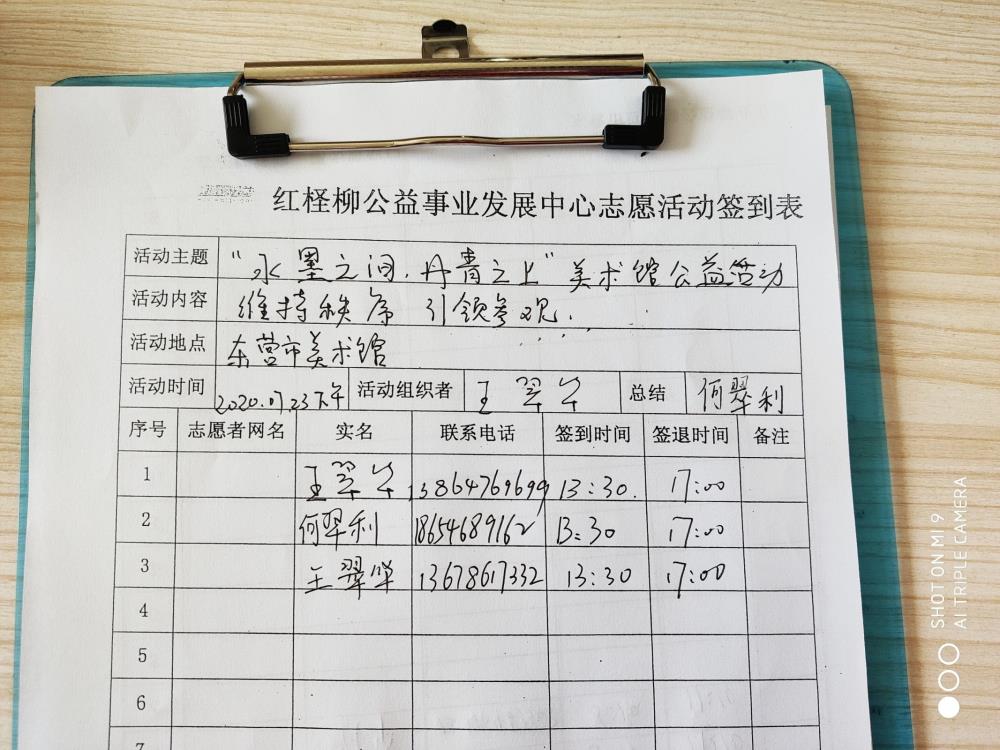 红柽柳公益事业发展中心志愿活动签到表
活动主题 “水墨之间,丹青之上”美术馆公益活动
活动内容 维持秩序 引领参观.
活动地点 东营市美术馆
活动时间 2020.07.23下午 活动组织者 王翠华 总结 何翠利
序号 志愿者网名 实名 联系电话 签到时间 签退时间 备注
1 王翠华 13864769699 13:30. 17:00
2 何翠利 18654689162 13:30 17:00
3 王翠华 13678617332 13:30 17:00
4
5
6
7
SHOT ON MI 9
AI TRIPLE CAMERA